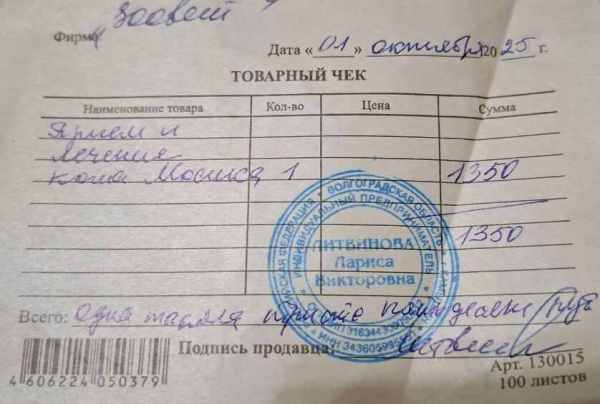 Фирма Зоовет
Дата «01» октября 2025 г.
ТОВАРНЫЙ ЧЕК
Наименование товара Кол-во Цена Сумма
Прием и
лечение
кота 1 1350
1350
Всего: одна тысяча триста пятьдесят руб
Подпись продавца:
ВОЛГОГРАДСКАЯ ОБЛАСТЬ
ИНДИВИДУАЛЬНЫЙ ПРЕДПРИНИМАТЕЛЬ
ЛИТВИНОВА
Лариса
Викторовна
4 606224 050379
Арт. 130015
100 листов